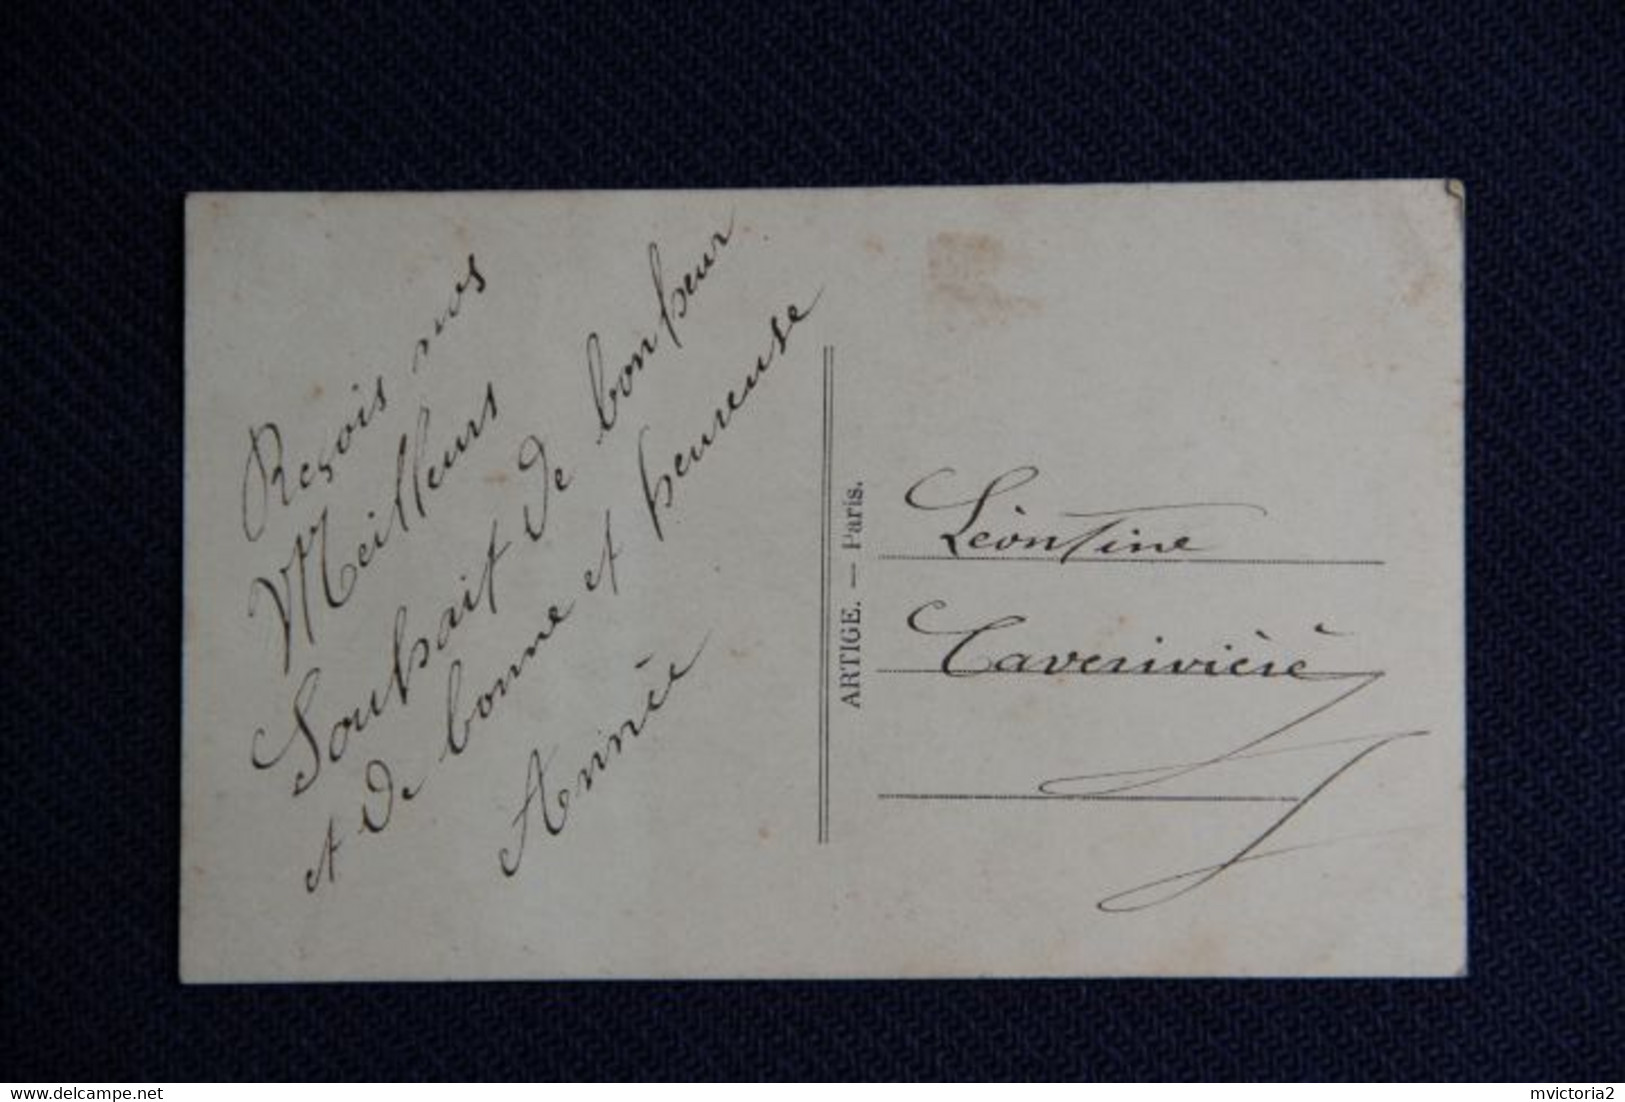 Reçois nos
Meilleurs
Souhait de bonheur
et de bonne et heureuse
Année
ARTIGE. — Paris.
Léontine
Taverivière
www.delcampe.net
mvictoria2